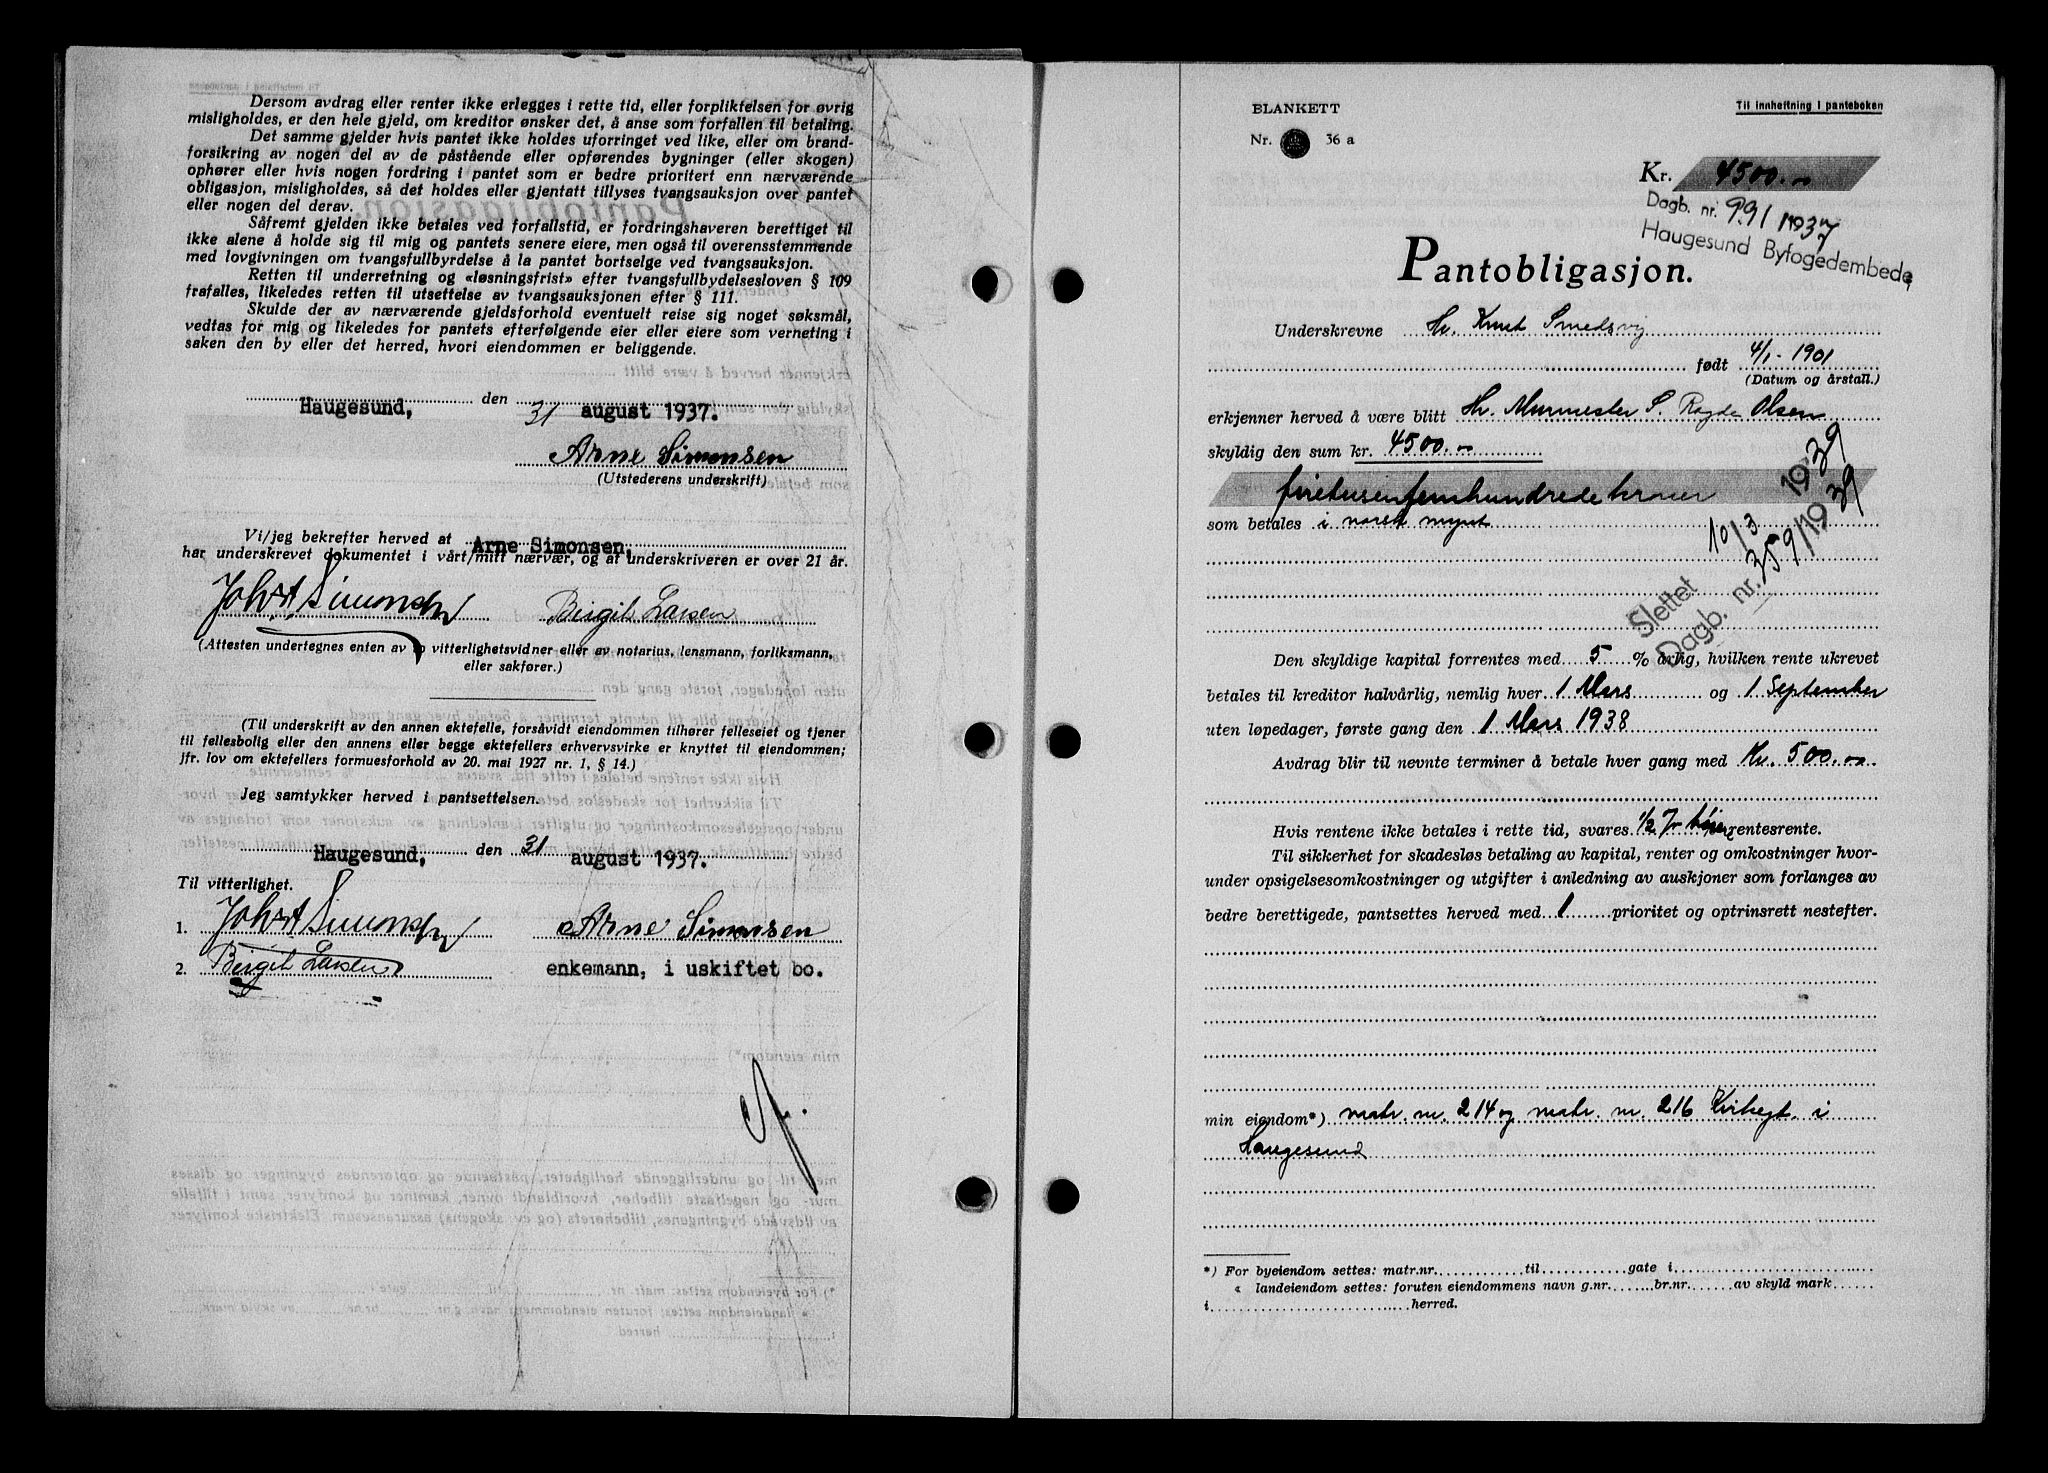 Dersom avdrag eller renter ikke erlegges i rette tid, eller forpliktelsen for øvrig
misligholdes, er den hele gjeld, om kreditor ønsker det, å anse som forfallen til betaling.
Det samme gjelder hvis pantet ikke holdes uforringet ved like, eller om brand-
forsikring av nogen del av de påstående eller opførendes bygninger (eller skogen)
ophører eller hvis nogen fordring i pantet som er bedre prioritert enn nærværende
obligasjon, misligholdes, så det holdes eller gjentatt tillyses tvangsauksjon over pantet
eller nogen del derav.
Såfremt gjelden ikke betales ved forfallstid, er fordringshaveren berettiget til
ikke alene å holde sig til mig og pantets senere eiere, men også til overensstemmende
med lovgivningen om tvangsfullbyrdelse å la pantet bortselge ved tvangsauksjon.
Retten til underretning og «løsningsfrist» efter tvangsfullbydelsesloven § 109
frafalles, likeledes retten til utsettelse av tvangsauksjonen efter § 111.
Skulde der av nærværende gjeldsforhold eventuelt reise sig noget søksmål,
vedtas for mig og likeledes for pantets efterfølgende eier eller eiere som verneting i
saken den by eller det herred, hvori eiendommen er beliggende.
Haugesund, den 31 august 1937.
Arne Simonsen
(Utstederens underskrift)
Vi/jeg bekrefter herved at Arne Simonsen,
har underskrevet dokumentet i vårt/mitt nærvær, og at underskriveren er over 21 år.
Joh. A Simonsen Birgit Larsen
(Attesten undertegnes enten av to vitterlighetsvidner eller av notarius, lensmann, forliksmann,
eller sakfører.)
(Til underskrift av den annen ektefelle, forsåvidt eiendommen tilhører felleseiet og tjener
til fellesbolig eller den annens eller begge ektefellers erhvervsvirke er knyttet til eiendommen;
jfr. lov om ektefellers formuesforhold av 20. mai 1927 nr. 1, § 14.)
Jeg samtykker herved i pantsettelsen.
Haugesund, den 31 august 1937.
Til vitterlighet.
1. Joh. A Simonsen Arne Simonsen
2. Birgit Larsen enkemann, i uskiftet bo.
BLANKETT
Nr. 36 a
Til innheftning i panteboken
Kr. 4500.-
Dagb. nr. 991 1937
Haugesund Byfogedembede
Pantobligasjon.
Underskrevne Hr. Knut Smedsvig
født 4/1-1901
(Datum og årstall.)
erkjenner herved å være blitt Hr. Murmester S. Ragde Olsen
skyldig den sum kr. 4500.-
firetusenfemhundrede kroner
som betales i norsk mynt
10/3 1939
Slettet
Dagb. nr. 359/1939
Den skyldige kapital forrentes med 5 % årlig, hvilken rente ukrevet
betales til kreditor halvårlig, nemlig hver 1 Mars og 1 September
uten løpedager, første gang den 1 Mars 1938
Avdrag blir til nevnte terminer å betale hver gang med Kr. 500.-
Hvis rentene ikke betales i rette tid, svares 1/2 % høiere rentesrente.
Til sikkerhet for skadesløs betaling av kapital, renter og omkostninger hvor-
under opsigelsesomkostninger og utgifter i anledning av auskjoner som forlanges av
bedre berettigede, pantsettes herved med 1 prioritet og optrinsrett nestefter.
min eiendom*) matr. nr. 214 og matr. nr. 216 Kirkegt. i
Haugesund
*) For byeiendom settes: matr.nr. til gate i
« landeiendom settes: foruten eiendommens navn g.nr. br.nr. av skyld mark
i herred.